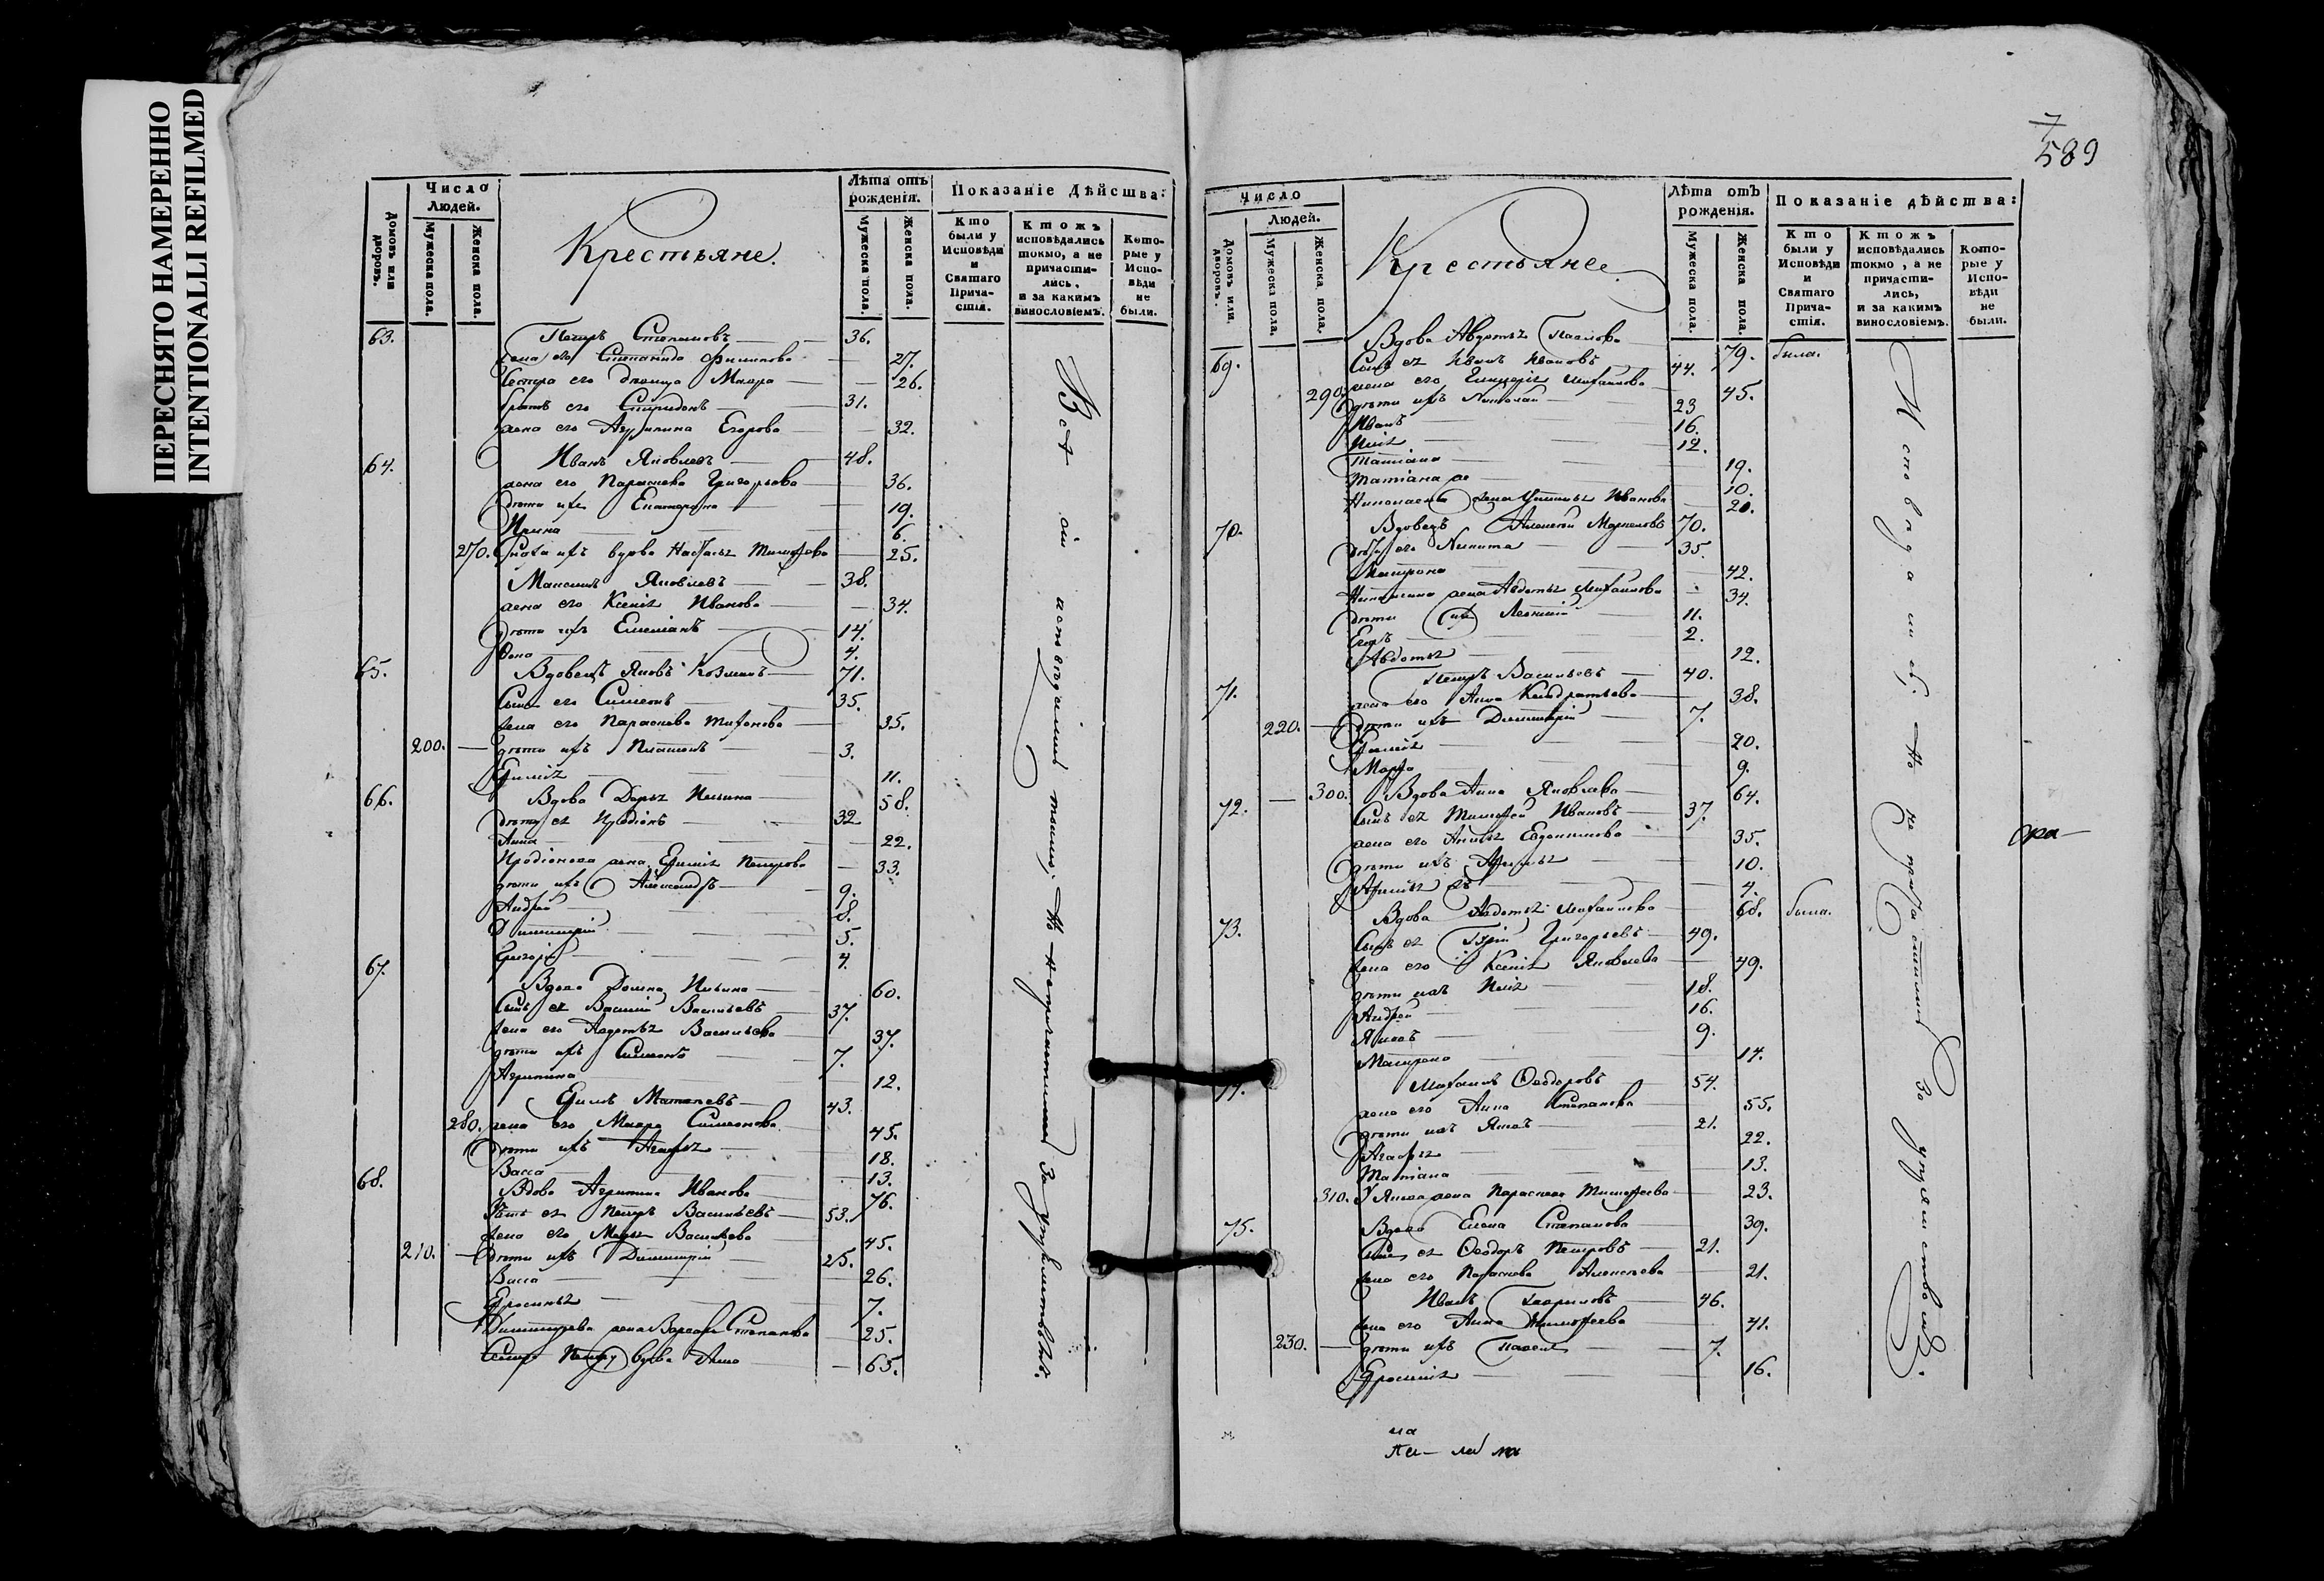 ПЕРЕСНЯТО НАМЕРЕННО
INTENTIONALLI REFILMED
Домовъ или дворовъ.
Число Людей.
Мужеска пола.
Женска пола.
Крестьяне.
Лѣта отъ рожденія.
Мужеска пола.
Женска пола.
Показаніе Дѣйства:
Кто были у Исповѣди и Святаго Прича-стія.
Ктожъ исповѣдались токмо, а не причасти-лись, и за какимъ винословіемъ.
Кото-рые у Испо-вѣди не были.
63. Петръ Степановъ 36.
жена его Степанида Филипова 27.
Сестра его девица Мавра 26.
братъ его Спиридонъ 31.
жена его Агрипина Егорова 32.
64. Иванъ Яковлевъ 48.
жена его Параскева Григорьева 36.
дѣти ихъ Екатерина 19.
Ирина 6.
270. Сноха ихъ вдова Настасья Тимофеева 25.
Максимъ Яковлевъ 38.
жена его Ксенія Иванова 34.
дѣти ихъ Емеліанъ 14.
4.
65. Вдовецъ Яковъ Козминъ 71.
Сынъ его Симеонъ 35.
жена его Параскева Тихонова 35.
200. дѣти ихъ Платонъ 3.
11.
66. Вдова Дарья Ильина 58.
дѣти ея Иродіонъ 32
Анна 22.
Иродіонова жена Петрова 33.
дѣти ихъ Александръ 9.
Андрей 8.
Димитрій 5.
Григорій 4.
67. Вдова Домна Ильина 60.
Сынъ ея Василій Васильевъ 37.
жена его Авдотья Васильева 37.
дѣти ихъ Симеонъ 7.
Агрипина 12.
Ефимъ Матвеевъ 43.
280. жена его Мавра Симеонова 45.
дѣти ихъ Агафья 18.
Васса 13.
68. Вдова Агрипина Иванова 76.
Сынъ ея Петръ Васильевъ 53.
жена его Марья Васильева 45.
210. дѣти ихъ Димитрій 25.
Васса 26.
Ефросинья 7.
Димитріева жена Варвара Степанова 25.
Сестра Петру вдова Анна 65.
Всѣ сіи исповѣдались токмо, но не причастились за упущеніемъ
7
589
Число Людей.
Домовъ или дворовъ.
Мужеска пола.
Женска пола.
Крестьяне
Лѣта отъ рожденія.
Мужеска пола.
Женска пола.
Показаніе дѣйства:
Кто были у Исповѣди и Святаго Прича-стія.
Ктожъ исповѣдались токмо, а не причасти-лись, и за какимъ винословіемъ.
Кото-рые у Испо-вѣди не были.
Вдова Авдотья Павлова 79. была.
69. Сынъ ея Иванъ Ивановъ 44.
290. жена его Гликерія Михайлова 45.
дѣти ихъ Николай 23
Иванъ 16.
Илія 12.
Татіана 19.
Татіана же 10.
Николаева жена Иванова 20.
70. Вдовецъ Алексей 70.
дѣти его Никита 35.
Матрона 42.
Никитина жена Авдотья Михайлова 34.
дѣти ихъ Леонтій 11.
Егоръ 2.
Авдотья 12.
71. Петръ Васильевъ 40.
жена его Анна Кондратьева 38.
220. дѣти ихъ Димитрій 7.
20.
Марфа 9.
72. 300. Вдова Анна Яковлева 64.
Сынъ ея Тимофей Ивановъ 37.
жена его Евдокимова 35.
дѣти ихъ 10.
4.
73. Вдова Авдотья Михайлова 68. была.
Сынъ ея Григорьевъ 49.
жена его Ксенія Яковлева 49.
дѣти ихъ Илія 18.
Андрей 16.
Яковъ 9.
Матрона 14.
74. Михаилъ Ѳеодоровъ 54.
жена его Анна Степанова 55.
дѣти ихъ Яковъ 21.
Агафья 22.
Татіана 13.
310. У Якова жена Параскева Тимофеева 23.
75. Вдова Елена Степанова 39.
Сынъ ея Ѳеодоръ Петровъ 21.
жена его Параскева Алексеева 21.
Иванъ Гавриловъ 46.
жена его Анна Тимофеева 41.
230. дѣти ихъ Павелъ 7.
Ефросинія 16.
Исповѣдались. Но не причастились За упущеніемъ